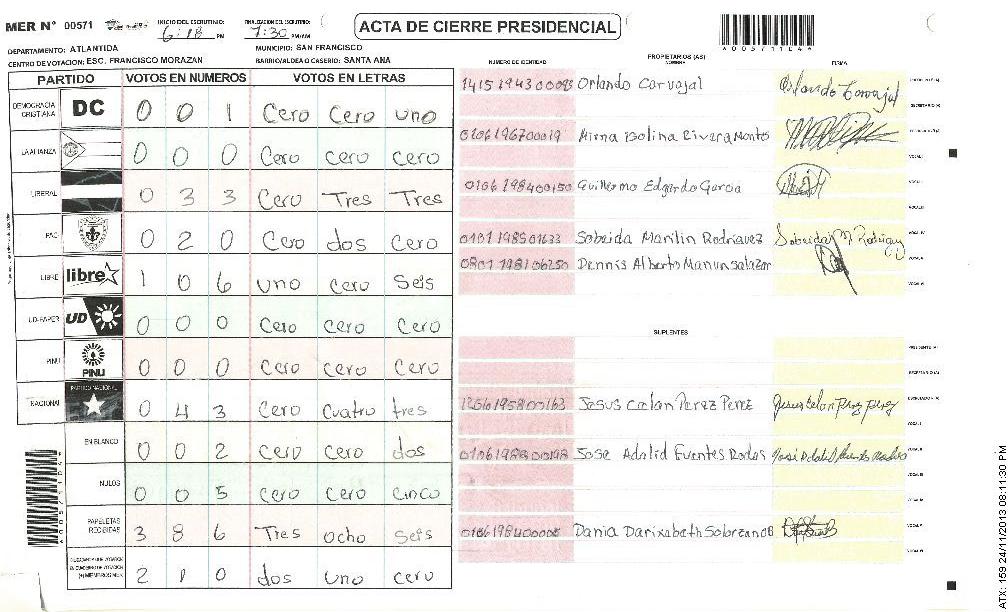 MER N° 00571
INICIO DEL ESCRUTINIO: 6:18 PM
FINALIZACION DEL ESCRUTINIO: 7:30 PM/AM
ACTA DE CIERRE PRESIDENCIAL
DEPARTAMENTO: ATLANTIDA
MUNICIPIO: SAN FRANCISCO
CENTRO DE VOTACION: ESC. FRANCISCO MORAZAN
BARRIO/ALDEA O CASERIO: SANTA ANA
PARTIDO VOTOS EN NUMEROS VOTOS EN LETRAS
DEMOCRACIA CRISTIANA DC 0 0 1 Cero Cero uno
LA ALIANZA 0 0 0 Cero cero cero
LIBERAL 0 3 3 Cero Tres Tres
PAC 0 2 0 Cero dos Cero
LIBRE libre 1 0 6 uno cero Seis
UD-FAPER UD 0 0 0 Cero cero Cero
PINU PINU 0 0 0 Cero cero Cero
NACIONAL PARTIDO NACIONAL 0 4 3 Cero Cuatro tres
EN BLANCO 0 0 2 Cero Cero dos
NULOS 0 0 5 Cero Cero Cinco
PAPELETAS RECIBIDAS 3 8 6 Tres ocho seis
2 1 0 dos uno cero
NUMERO DE IDENTIDAD
PROPIETARIOS (AS)
NOMBRE
FIRMA
Orlando Carvajal Orlando Carvajal
0106196700019 Mirna Isolina Rivera Montes
0106198400150 Guillermo Edgardo Garcia
0101198501633 Sobeida Marilin Rodriguez
0801198106250 Dennis Alberto
SUPLENTES
Jesus Catan Perez Perez
Jose Adalid Fuentes Rodas
Dania Darixabeth
A005711044
ATX: 159 24/11/2013 08:11:30 PM